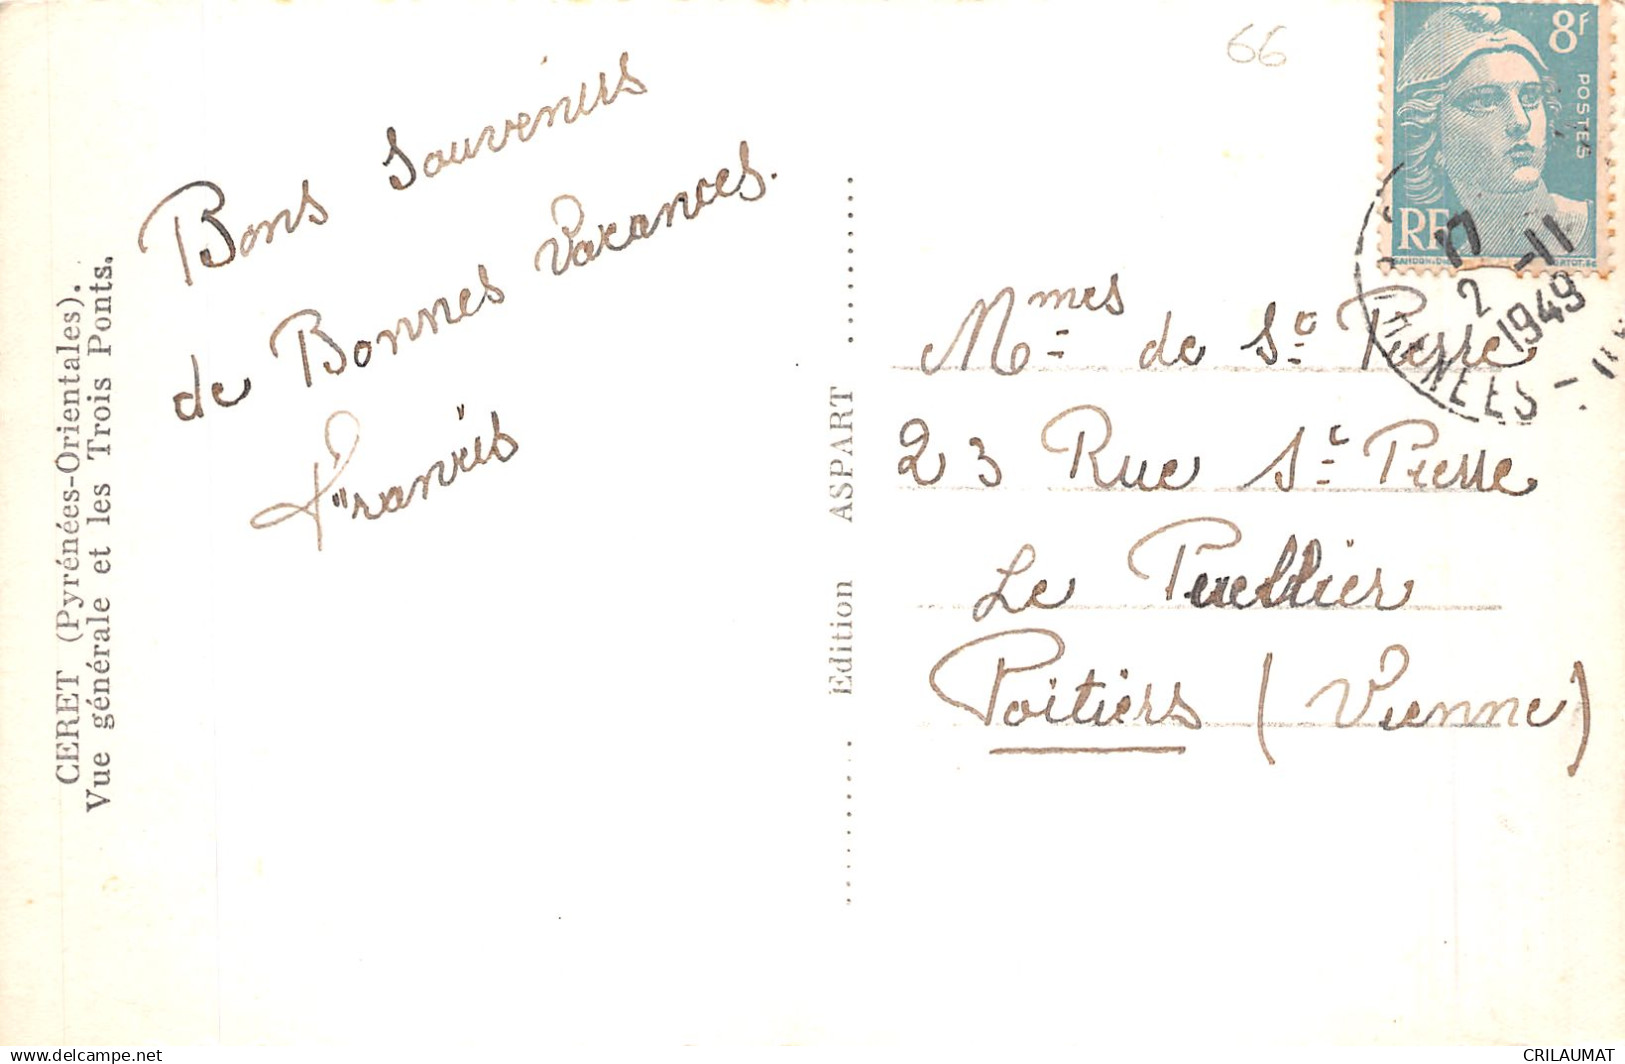 CERET (Pyrénées-Orientales).
Vue générale et les Trois Ponts.
Bons Souvenirs
de Bonnes Vacances.
Francis
Edition ASPART
66
8F
POSTES
RF
17
2 -11
1949
Mmes de St Pierre
23 Rue St Pierre
Le Puellier
Poitiers (Vienne)
www.delcampe.net
CRILAUMAT